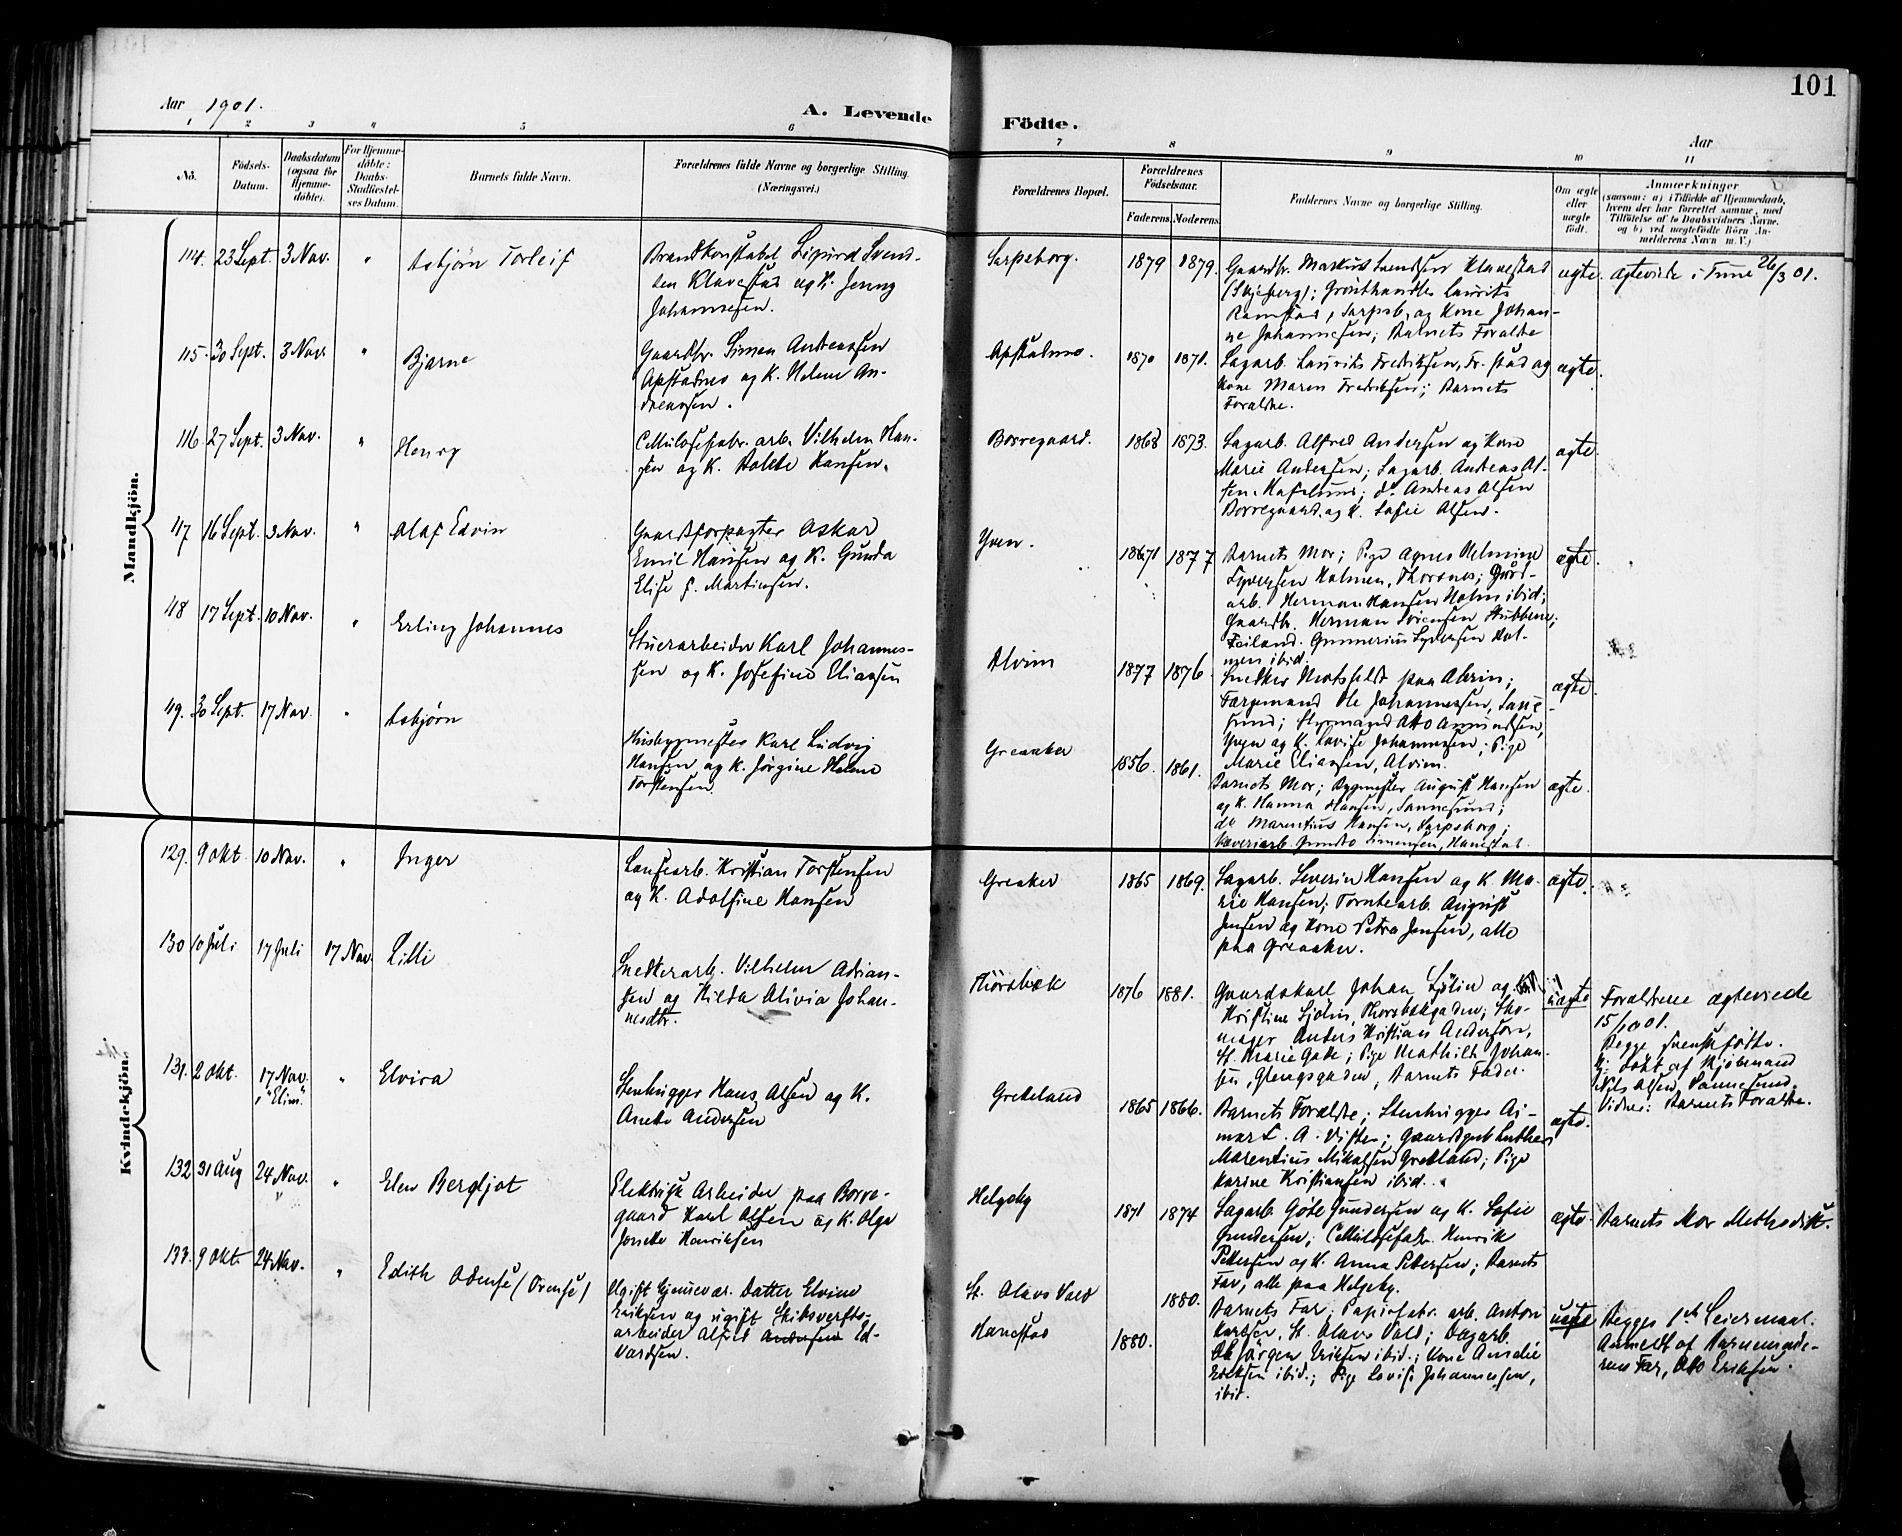 101
Aar 1901.
A. Levende
Födte.
Aar
1 2 3 4 5 6 7 8 9 10 11
No.
Födsels-
Datum.
Daabsdatum
(ogsaa for
Hjemme-
døbte).
For Hjemme-
döbte:
Daabs-
Stadfæstel-
ses Datum.
Barnets fulde Navn.
Forældrenes fulde Navne og borgerlige Stilling.
(Næringsvei.)
Forældrenes Bopæl.
Forældrenes
Födselsaar.
Faderens. Moderens.
Faddernes Navne og borgerlige Stilling.
Om ægte
eller
uægte
födt.
Anmærkninger
(saasom: a) i Tilfælde af Hjemmedaab,
hvem der har forrettet samme, med
Tilföielse af to Daabsvidners Navne,
og b) ved uægtefödte Börn An-
melderens Navn m. V.)
Mandkjön.
114. 23 Sept. 3 Nov. " Asbjørn Torleif
Brandkonstabel Sigurd Svend-
sen Klavestad og K. Jenny
Johannesen.
Sarpsborg. 1879 1879.
Gaardbr. Markus Svendsen Klavestad
(Skjeberg); Grosthandler Laurits
Ramstad, Sarpsb. og Kone Johan-
ne Johannesen; Barnets Foraldre
ægte. ægteviede i Tune 26/3 01.
115. 30 Sept. 3 Nov. " Bjarne
Gaardbr. Simen Andreassen
og K. Helene An-
dreassen.
1870 1871.
Sagarb. Laurits Fredriksen, Fr.stad og
Kone Maren Fredriksen; Barnets
Foraldre.
ægte.
116. 27 Sept. 3 Nov. " Henry
Cellulosefabr. arb. Vilhelm Han-
sen og K. Hansen.
Borregaard. 1868 1873.
Sagarb. Alfred Andersen og Kone
Marie Andersen; Sagarb. Andreas Ol-
sen Hafslund; do Andreas Olsen
Borregaard og K. Sofie Olsen.
ægte.
117 16 Sept. 3 Nov. " Olaf Edvin
Gaardforpagter Oskar
Emil Hansen og K. Gunda
Elise f. Martinsen.
Yven. 1871 1877
Barnets Mor; Pige Agnes Helmine
Syversen Holmen, Thorsnes; Gård-
arb. Herman Hansen Holm ibid;
Gaardbr. Herman Sørensen Stubbene;
Gunnerius Syversen Hol-
men ibid.
ægte.
48 17 Sept. 10 Nov. " Erling Johannes
Stuerarbeider Karl Johannes-
sen og K. Josefine Eliassen
Alvim 1877 1876.
Snedker paa Alvim;
Ole Johannessen, Sane-
sund; Styrmand Otto Amundsen,
Yven og K. Lovise Johannesen; Pige
Marie Eliassen, Alvim.
ægte.
49. 30 Sept. 17 Nov. " Asbjørn
Husbygmester Karl Ludvig
Hansen og K. Jørgine Helene
Torstensen.
Greaaker 1856. 1861.
Barnets Mor; Bygmester August Hansen
og K. Hanna Hansen, Sannesund;
do Marentius Hansen, Sarpsborg;
Simensen, Hanestad.
ægte.
Kvindekjön.
129. 9 Okt. 10 Nov. " Inger
Kristian Torstensen
og K. Adolfine Hansen
Greaker 1865 1869.
Sagarb. Severin Hansen og K. Ma-
rie Hansen; Tomtearb. August
Jensen og Kone Petra Jensen, alle
paa Greaaker.
ægte.
130 10 Juli 17 Juli 17 Nov. Lilli
Snedkerarb. Vilhelm Adrian-
sen og Hilda Alivia Johan-
nesdtr.
Thorsbæk 1876 1881.
Gaardskarl Johan Sjølin og
Kristine Sjølin, Thorsbækgaden; Sko-
mager Anders Kristian Anderson,
St. Marie Gade; Pige Mathilde Johan-
sen, Glengsgaden; Barnets Fader.
uægte
Foraldrene ægteviede
15/10 01.
Begge svenskfødte.
Hj. døbt af Kjøbmand
Nils Olsen, Sannesund.
Vidner: Barnets Foraldre.
131. 2 Okt. 17 Nov. " Elvira
i "Elim".
Stenhugger Hans Olsen og K.
Anette Andersen
Grekeland 1865 1866.
Barnets Foraldre; Stenhugger Ai-
mart. A. Vister; Gaardgut Luther
Marentius Mikalsen Grekland; Pige
Karine Kristiansen ibid.
ægte.
132 31 Aug 24 Nov. " Elen Bergljot
Elektrisk Arbeider paa Borre-
gaard Karl Olsen og K. Olga
Jonette Henriksen
Helgeby 1871 1874
Sagarb. Gøte Gundersen og K. Sofie
Gundersen; Cellulosefabr. Henrik
Pettersen og K. Anna Pettersen; Barnets
Far, alle paa Helgeby.
ægte. Barnets Mor Methodist.
133. 9 Okt. 24 Nov. " Edith Odense (Ovense)
Ugift hjemmevær. Datter Elvine
Eriksen og ugift Skibsverfts-
arbeider Alfred Andersen Ed-
vardsen.
St. Olavs Vold
Hanestad
1880.
1880.
Barnets Far; Papirfabr. arb. Anton
Karlsen, St. Olavs Vold; Dagarb.
Jørgen Eriksen ibid.; Kone Amelie
Eriksen ibid.; Pige Lovise Johannessen,
ibid.
uægte
Begges 1ste Leiermaal.
Anmeldt af Barnemode-
rens Far, Otto Eriksen.